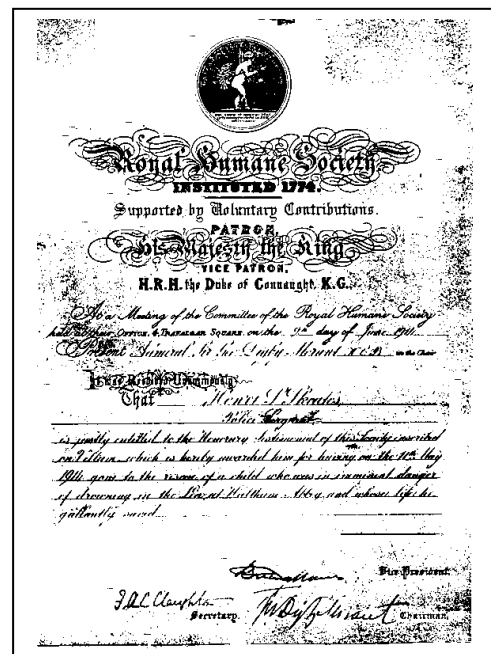 Royal Humane Society
INSTITUTED 1774.
Supported by Voluntary Contributions.
PATRON,
His Majesty the King
VICE PATRON,
H.R.H. the Duke of Connaught, K.G.
At a Meeting of the Committee of the Royal Humane Society
held at their OFFICE, 4, TRAFALGAR SQUARE, on the 9th day of June 1914
Present Admiral Sir Geo Digby Morant K.C.B. in the Chair
It was Resolved Unanimously
That Henri
Police Sergeant
is justly entitled to the Honorary Testimonial of this Society inscribed
on Vellum, which is hereby awarded him for having on the 10th May
1914 gone to the rescue of a child who was in imminent danger
of drowning in the Lea, at Waltham Abbey and whose life he
gallantly saved.
Vice President.
Secretary.
Chairman.